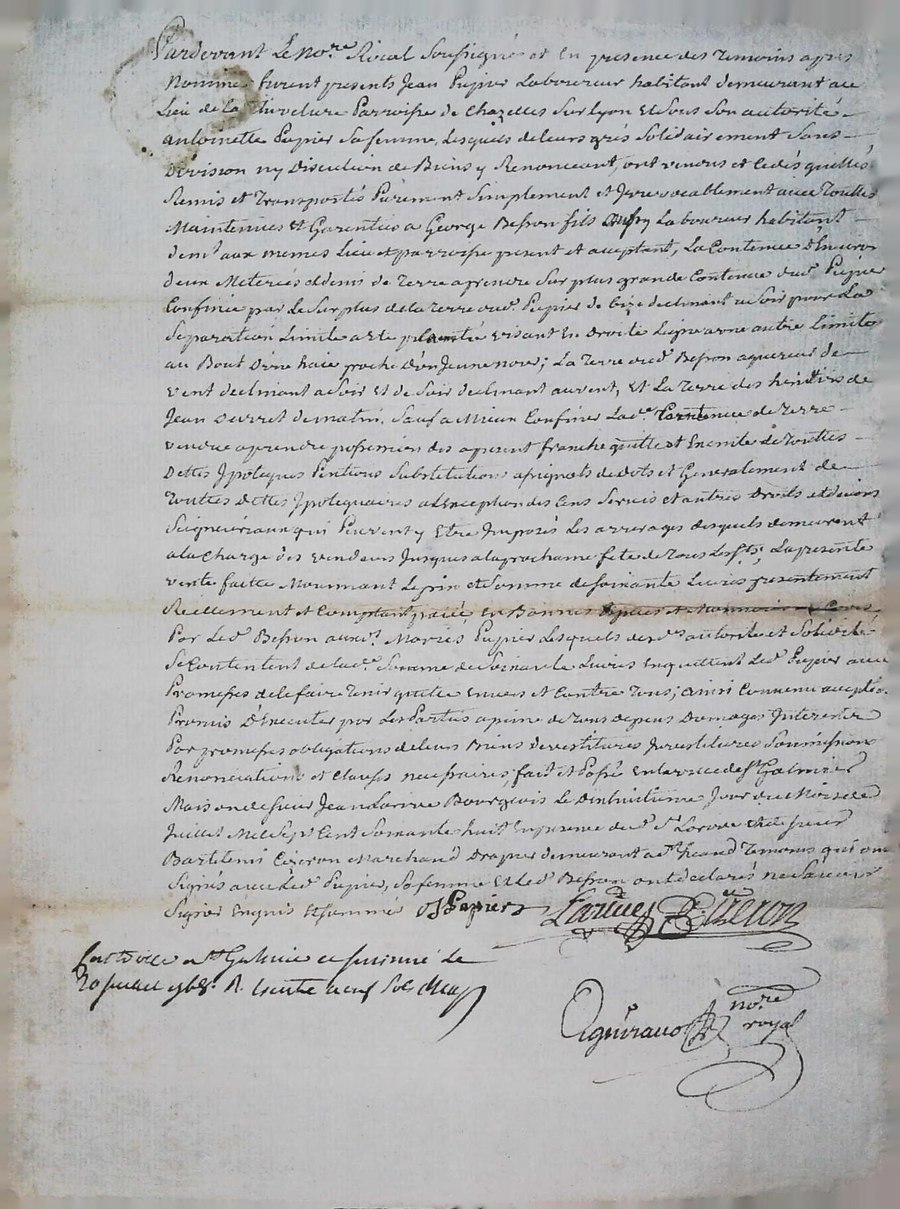 Pardevant Le no.re Roial Soussigné et En presence des Temoins apres
Nommés furent presents Jean Pupier Laboureur habitant demeurant au
Lieu de la Paroisse de Chazelles Sur Lyon et Sous Son autorité
antoinette Pupier Sa femme, Lesquels de leurs grés Solidairement Sans
Division ny Discution de Biens y Renonceant, ont vendus et Cedés quittés
Remis et Transportés Purement Simplement et Irrevocablement avec Touttes
Maintenües et Garenties a George Besson fils Laboureur habitant
dem.t aux memes Lieu et parroisse present et aceptant, La Contenue D'Environ
deux Meterées et demis de Terre a prendre Sur plus grande Contenue dud. Pupier
Confinée par Le Surplus de la Terre dud. Pupier de bize declinant a Soir pour La
Separation Limite a ete plantée visant En Droite Ligne a une autre Limite
au Bout D'une haie proche D'un Jeune noier; La Terre dud. Besson aquereur de
vent declinant a Soir et de Soir declinant au vent, et La Terre des héritiers de
Jean de matin, Sauf a Mieux Confiner Lad.e Contenue de Terre
vendue a prendre possession des apresent franche quitte et Exemte de Touttes
Dettes Ypoteques Pentions Substitutions asignats de dots et Generalement de
Touttes dettes Ypotequaires a L'Exception des Cens Servis et autres Droits et devoirs
Seigneuriaux qui Peuvent y Etre Imposés Les arrerages desquels demeurent
a la Charge des vendeurs Jusques a la prochaine fete de Tous Les S.ts; La presente
vente faitte Moiennant Le prix et Somme de Soixante Livres presentement
Reellement et Comptant paiée, En Bonnes Especes et Monnoies Cours
Par Led. Besson aux d. Mariés Pupier Lesquels de d.e autorité et Solidité
Se Contentent de lad.e Somme de Soixante Livres En quittent Led. avec
Promesses de le faire Tenir quitte Envers et Contre Tous; ainsi Convenu accepté
Promis D'Executer par Les Parties a peine de Tous depens Domages Interets
Par promesses obligations de leurs Biens devestitures Investitures Soumissions
Renonciations et Clauses necessaires, fait et Passé En la ville de S.t Galmier
Maison de Sieur Jean Larive Bourgeois Le Dixhuitieme Jour du Mois de
Juillet Mil Sept Cent Soixante huit En presence dud. S.r Larive et de Sieur
Bartelemi Cizeron Marchand Drapier demeurant a Temoins qui ont
Signés avec Led. Pupier, Sa femme et Led. Besson ont declarés ne Savoir
Signer Enquis et Sommés
J Papier Larive B. Cizeron
Controllé a St Galmier ce
20 juillet 1768. R. trente neuf Sols
no.re
royal